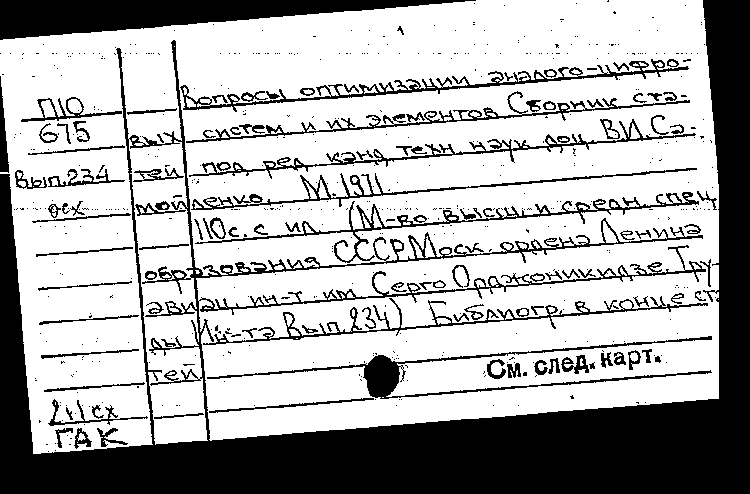 1
Вопросы оптимизации аналого-цифро-
П10
675
вых систем и их элементов Сборник ста-
Вып.234
тей под ред. канд. техн наук доц. В.И.Са-
осх
мойленко. М.,1971
110с. с ил. (М-во высш. и средн. спец.
образования СССР.Моск. ордена Ленина
авиац. ин-т им Серго Орджоникидзе. Тру-
ды Ин-та Вып.234) Библиогр. в конце ста
тей
См. след. карт.
2+1 сх
ГАК